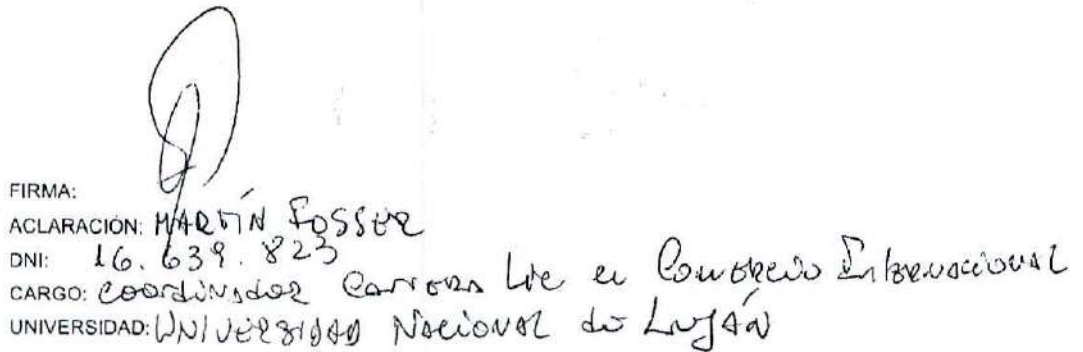 FIRMA:
ACLARACIÓN: MARTÍN FOSSER
DNI: 16.639.823
CARGO: Coordinador Carrera Lic en Comercio Internacional
UNIVERSIDAD: UNIVERSIDAD Nacional de Luján